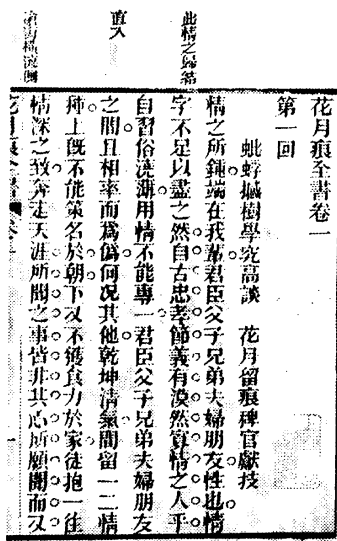 花月痕全書卷一
第一回
蚍蜉撼樹學究高談　花月留痕稗官獻技
情之所鍾端在我輩君臣父子兄弟夫婦朋友性也情
字不足以盡之然自古忠孝節義有漠然寡情之人乎
自習俗澆薄用情不能專一君臣父子兄弟夫婦朋友
之間且相率而為偽何況其他乾坤清氣間留一二情
種上既不能策名於朝下又不獲食力於家徒抱一往
情深之致奔走天涯所聞之事皆非其心所願聞而又
此情之歸結
直入